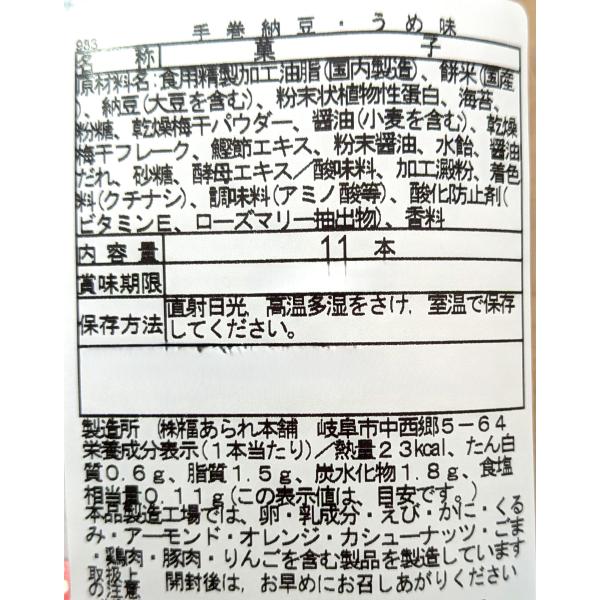 手巻納豆・うめ味
983
名称 菓子
原材料名：食用精製加工油脂（国内製造）、餅米（国産
）、納豆（大豆を含む）、粉末状植物性蛋白、海苔、
粉糖、乾燥梅干パウダー、醤油（小麦を含む）、乾燥
梅干フレーク、鰹節エキス、粉末醤油、水飴、醤油
だれ、砂糖、酵母エキス／酸味料、加工澱粉、着色
料（クチナシ）、調味料（アミノ酸等）、酸化防止剤（
ビタミンE、ローズマリー抽出物）、香料
内容量 11本
賞味期限
保存方法 直射日光，高温多湿をさけ，室温で保存
してください。
製造所 ㈱福あられ本舗 岐阜市中西郷5－64
栄養成分表示（1本当たり）／熱量23kcal、たん白
質0.6g、脂質1.5g、炭水化物1.8g、食塩
相当量0.11g（この表示値は、目安です。）
本品製造工場では、卵・乳成分・えび・かに・くる
み・アーモンド・オレンジ・カシューナッツ・ごま
・鶏肉・豚肉・りんごを含む製品を製造しています
取扱上の注意 開封後は、お早めにお召しあがりください